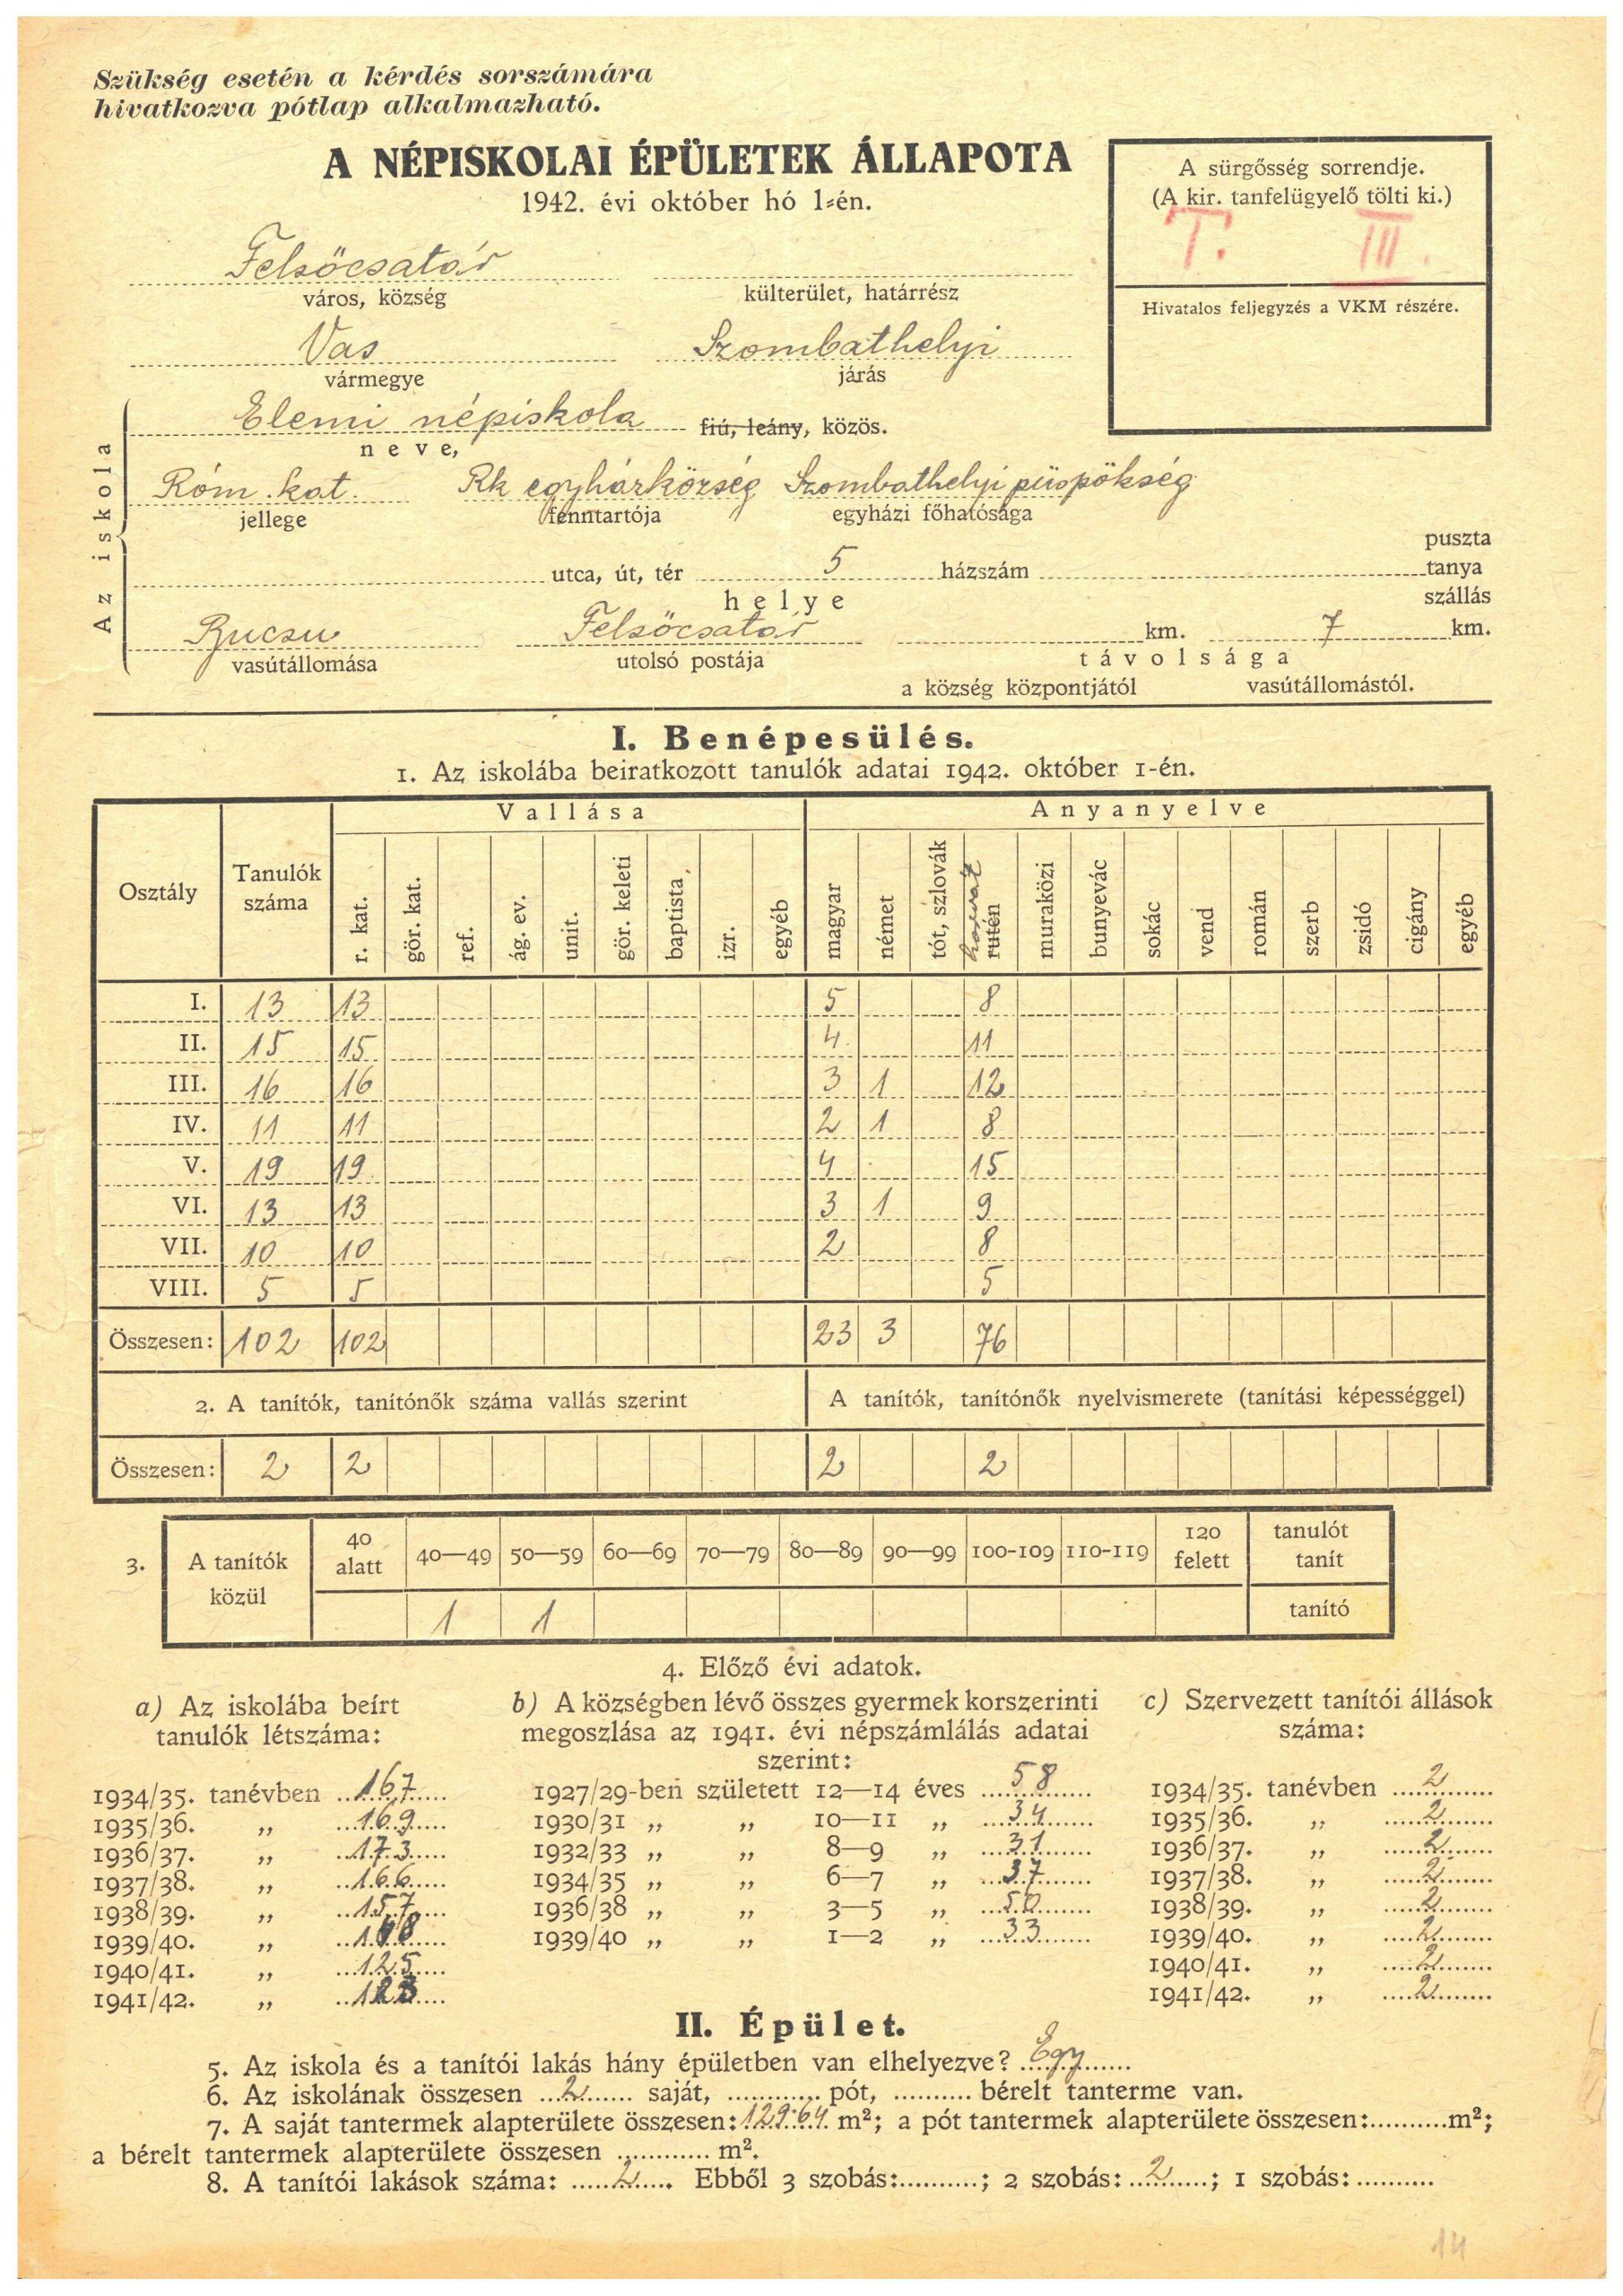 Szükség esetén a kérdés sorszámára
hivatkozva pótlap alkalmazható.
A NÉPISKOLAI ÉPÜLETEK ÁLLAPOTA
1942. évi október hó 1-én.
A sürgősség sorrendje.
(A kir. tanfelügyelő tölti ki.)
T. III.
Hivatalos feljegyzés a VKM részére.
Felsőcsatár
város, község külterület, határrész
Vas Szombathelyi
vármegye járás
Az iskola
Elemi népiskola fiú, leány, közös.
neve,
Róm. kat. Rk egyházközség Szombathelyi püspökség
jellege fenntartója egyházi főhatósága
puszta
utca, út, tér 5 házszám tanya
helye szállás
Bucsu Felsőcsatár km. 7 km.
vasútállomása utolsó postája távolsága
a község központjától vasútállomástól.
I. Benépesülés.
1. Az iskolába beiratkozott tanulók adatai 1942. október 1-én.
Osztály Tanulók száma Vallása Anyanyelve
r. kat. gör. kat. ref. ág. ev. unit. gör. keleti baptista izr. egyéb magyar német tót, szlovák horvát rutén muraközi bunyevác sokác vend román szerb zsidó cigány egyéb
I. 13 13 5 8
II. 15 15 4 11
III. 16 16 3 1 12
IV. 11 11 2 1 8
V. 19 19 4 15
VI. 13 13 3 1 9
VII. 10 10 2 8
VIII. 5 5 5
Összesen: 102 102 23 3 76
2. A tanítók, tanítónők száma vallás szerint A tanítók, tanítónők nyelvismerete (tanítási képességgel)
Összesen: 2 2 2 2
3. A tanítók közül 40 alatt 40—49 50—59 60—69 70—79 80—89 90—99 100-109 110-119 120 felett tanulót tanít
1 1 tanító
4. Előző évi adatok.
a) Az iskolába beírt
tanulók létszáma:
1934/35. tanévben 167
1935/36. „ 169
1936/37. „ 173
1937/38. „ 166
1938/39. „ 157
1939/40. „
1940/41. „ 125
1941/42. „
b) A községben lévő összes gyermek korszerinti
megoszlása az 1941. évi népszámlálás adatai
szerint:
1927/29-ben született 12—14 éves 58
1930/31 „ „ 10—11 „ 34
1932/33 „ „ 8—9 „ 31
1934/35 „ „ 6—7 „ 37
1936/38 „ „ 3—5 „ 50
1939/40 „ „ 1—2 „ 33
c) Szervezett tanítói állások
száma:
1934/35. tanévben 2
1935/36. „ 2
1936/37. „ 2
1937/38. „ 2
1938/39. „ 2
1939/40. „ 2
1940/41. „ 2
1941/42. „ 2
II. Épület.
5. Az iskola és a tanítói lakás hány épületben van elhelyezve? Egy
6. Az iskolának összesen 2 saját, pót, bérelt tanterme van.
7. A saját tantermek alapterülete összesen: 129.64 m²; a pót tantermek alapterülete összesen: m²;
a bérelt tantermek alapterülete összesen m².
8. A tanítói lakások száma: 2. Ebből 3 szobás: ; 2 szobás: 2 ; 1 szobás:
14